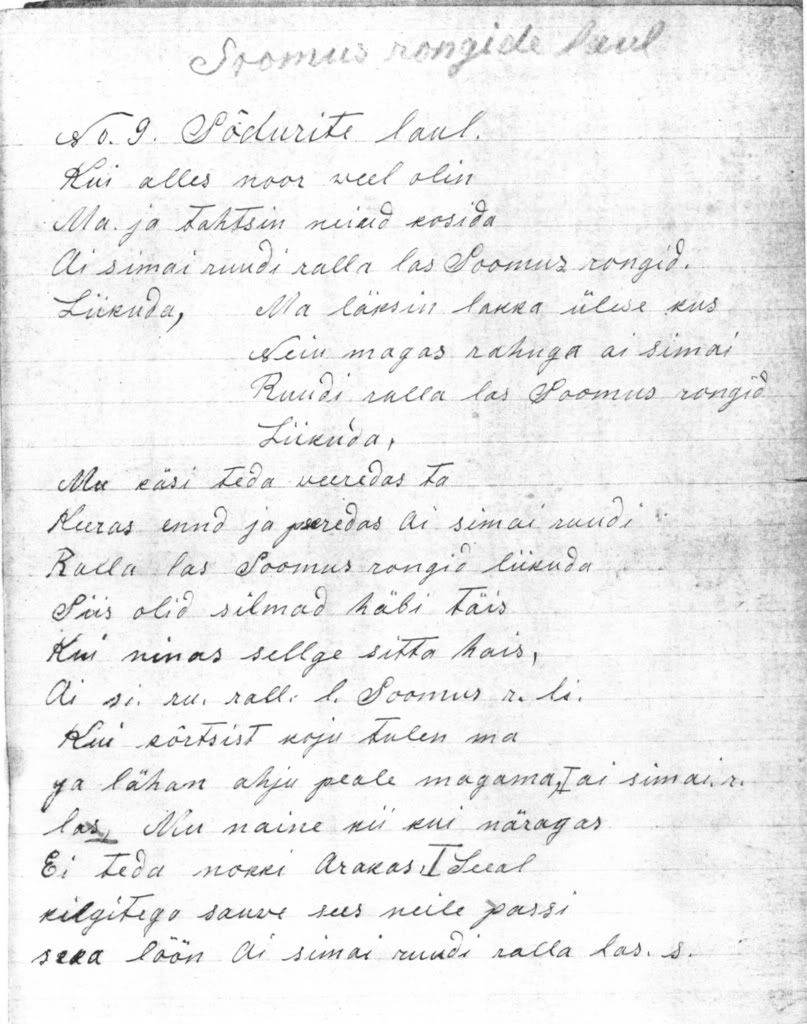 Soomus rongide laul
No. 9. Sõdurite laul.
Kui alles noor weel olin
Ma. ja tahtsin neiud kosida
Ai simai ruudi ralla las Soomus rongid.
Liikuda, Ma läksin lakka ülese kus
Neiu magas rahuga ai simai
Ruudi ralla las Soomus rongid
Liikuda,
Mu käsi teda weeredas ta
Keeras ennd ja peeredas Ai simai ruudi
Ralla las Soomus rongid liikuda
Siis olid silmad häbi täis
Kui ninas sellge sitta hais,
Ai si. ru. rall. l. Soomus r. li.
Kui kõrtsist koju tulen ma
ja lähan ahju peale magama, ai simai. r.
las, Mu naine kii kui näragas
Ei teda nokki Arakas, Seeal
kilgitega sauwe sees neile passi
löön Ai simai ruudi ralla las. s.